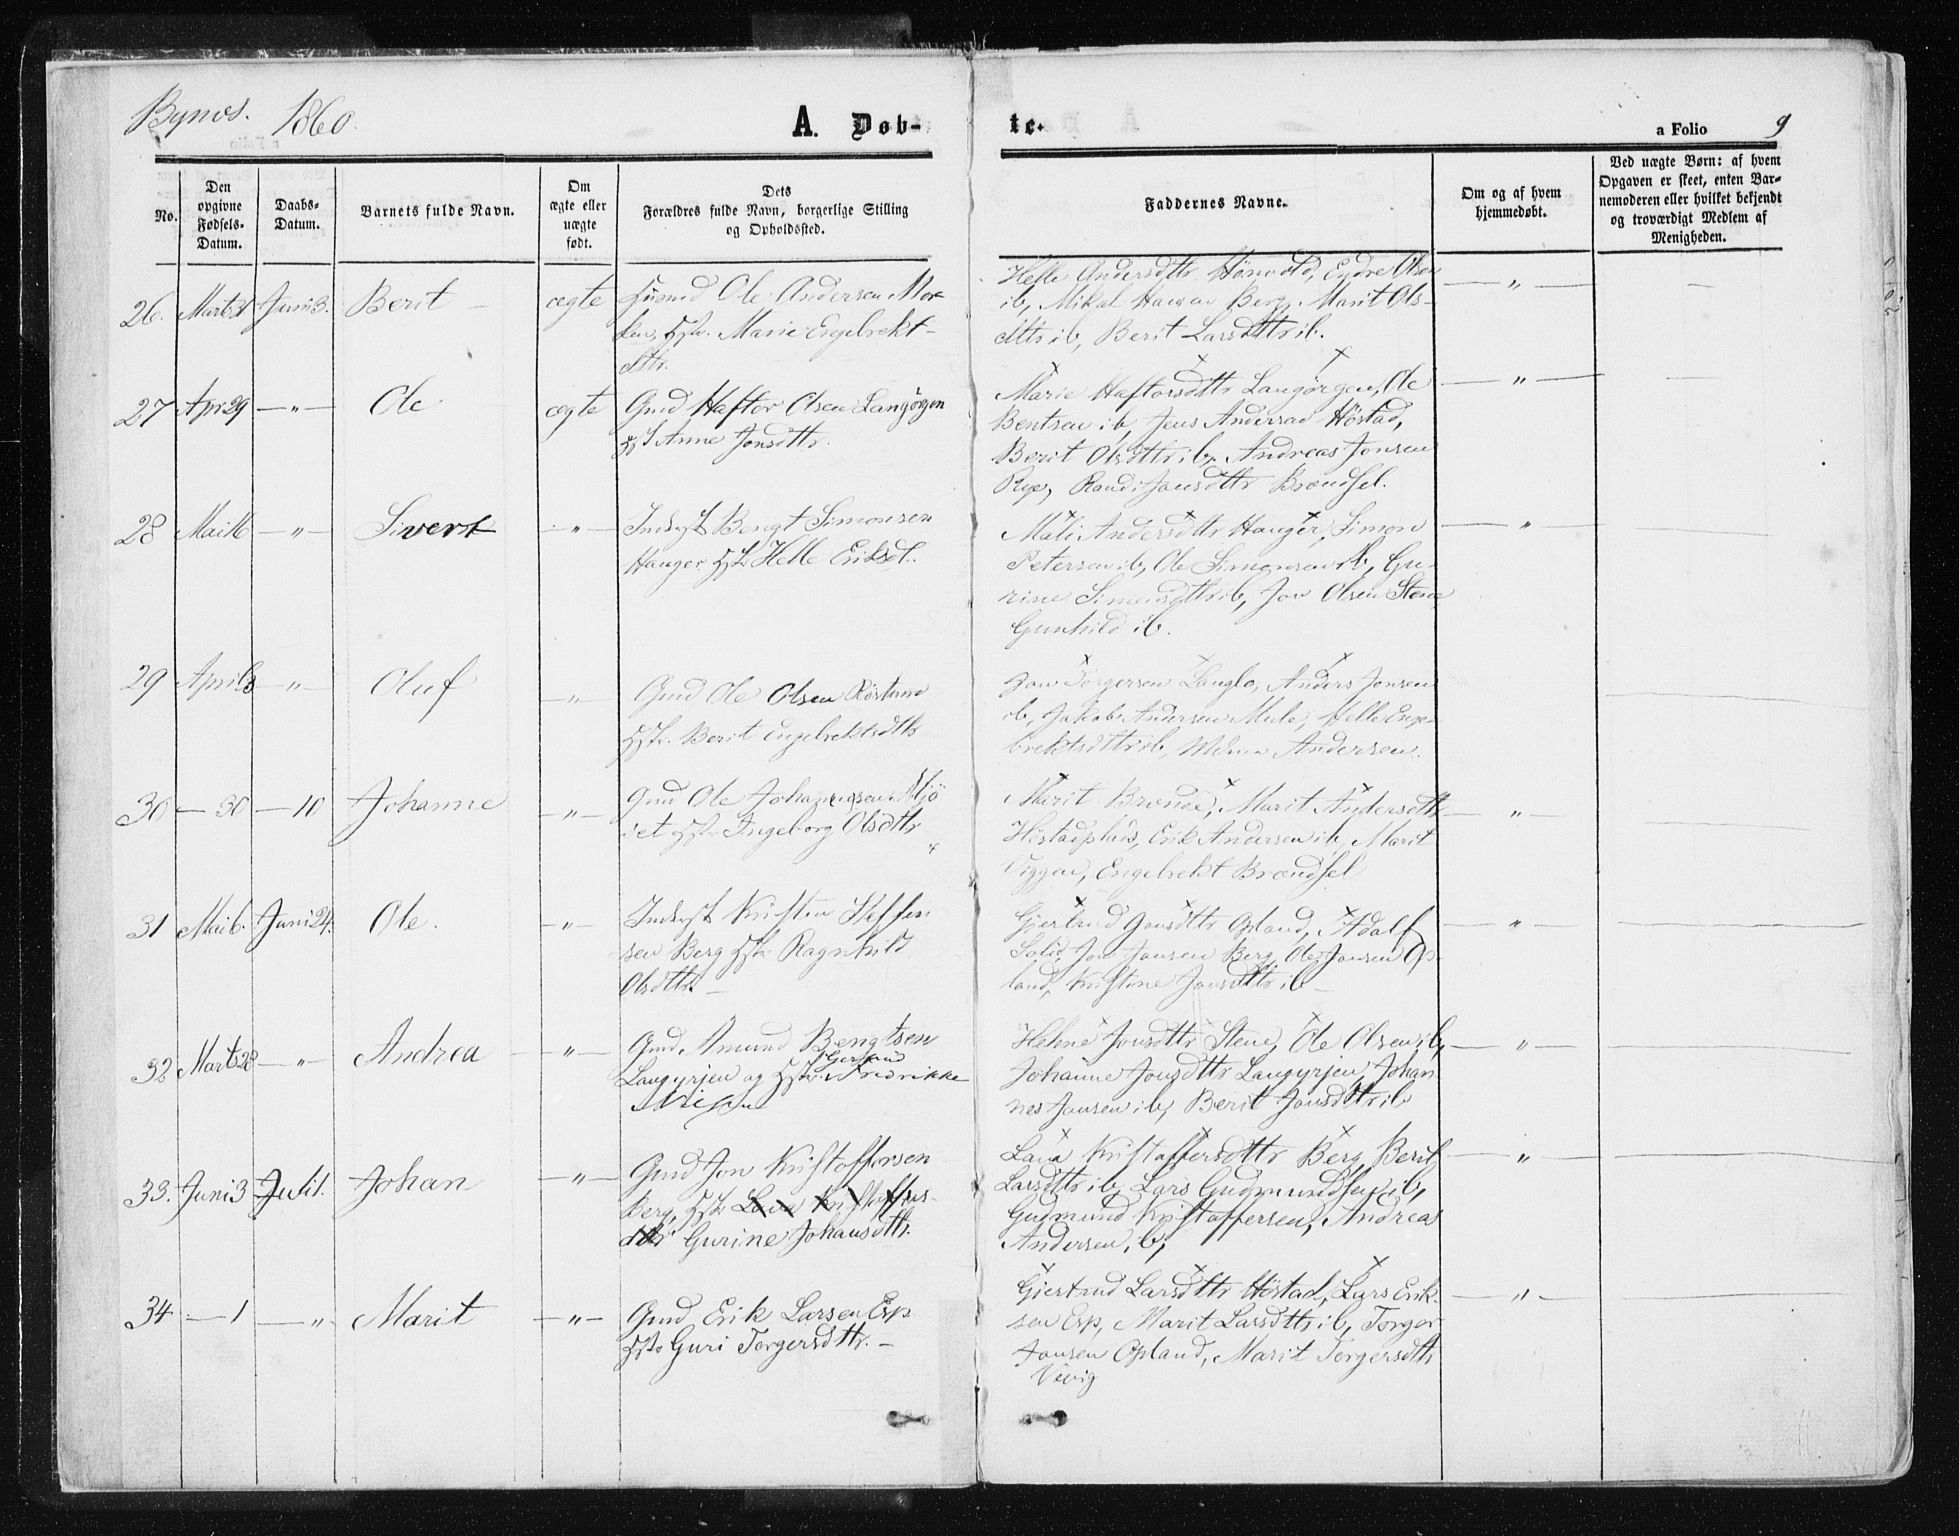 Bynes. 1860.
A. Døb-
te.
a Folio 9
No.
Den opgivne Fødsels-Datum.
Daabs-Datum.
Barnets fulde Navn.
Om ægte eller uægte født.
Dets Forældres fulde Navn, borgerlige Stilling og Opholdssted.
Faddernes Navne.
Om og af hvem hjemmedøbt.
Ved uægte Børn: af hvem Opgaven er skeet, enten Barnemoderen eller hvilket bekjendt og troværdigt Medlem af Menigheden.
26. Marts Juni 3. Berit ægte Husmd Ole Andersen
Hstr. Marie Engelrekt-
dttr.
Helle Andersdttr Eydre Olsen
ib, Mikal Berg, Marit Ols-
dttr ib, Berit Larsdttr ib.
27 Apr 29 — " — Ole ægte Gmd Haftor Olsen Langörgen
Anne Jonsdttr.
Marie Haftorsdttr Langörgen, Ole
Bentsen ib, Jens Andersen Höstad,
Berit Olsdttr ib, Andreas Jonsen
Rye, Randi Jonsdttr Brændsel.
28 Mai 16 — " — Sivert — " — Inderst Bengt Simonsen
Hauger Hstr Helle Eriksdt.
Mali Andersdttr Hauger, Simon
Petersen ib, Ole Simonsen ib, Gu-
rine Simonsdttr ib, Jon Olsen Stene
Gunhild ib.
29 April — " — Oluf — " — Gmd Ole Olsen
Hstr. Berit Engelrektsdttr
Jon Torgersen Langlo, Anders Jonsen
ib, Jakob Andersen Mule, Helle Enge-
brektsdttr ib, Andersen.
30 — 30 — 10 Johanne — " — Gmd Ole Johannesen Mjö
set Hstr. Ingeborg Olsdttr
Marit Marit Andersdttr — " —
Höstadplads, Erik Andersen ib, Marit
Viggen, Engelrekt Brændsel
31 Mai 6. Juni 24. Ole. — " — Inderst Kristen Steffen
sen Berg Hstr Ragnhild
Olsdttr. —
Gjertrud Jonsdttr Opland, Adolf — " —
Solid, Jon Jonsen Berg, Ole Jonsen Op-
land, Kristine Jonsdttr ib
32 Marts 28 — " — Andrea — " — Gmd. Amund Bengtsen
Langyrjen og Hstr. Fredrikke
Helene Jonsdttr Stene, Ole Olsen ib, — " —
Johanne Jonsdttr Langyrjen, Johan
nes Jonsen ib, Berit Jonsdttr ib
33. Juni 3 Juli 1. Johan — " — Gmd Jon Kristoffersen
Berg, Hstr Lava Kristoffers-
dttr Gurine Johansdttr.
Lava Kristoffersdttr Berg, Berit — " —
Larsdttr ib, Lars Gudmundsen ib,
Gudmund Kristoffersen, Andreas
Andersen, ib,
34 — 1 — " — Marit — " — Gmd Erik Larsen Esp
Hstr Guri Torgersdttr. —
Gjertrud Larsdttr Höstad, Lars Erik- — " —
sen Esp, Marit Larsdttr ib, Torger
Jonsen Opland, Marit Torgersdttr
Vevig